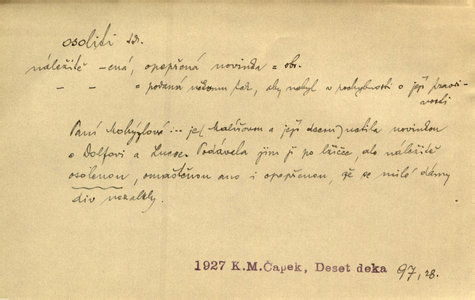 osoliti sv.
náležitě -ená, opepřená novinka = obr.
- - = podaná někomu tak, aby nebyl v pochybnosti o její pravdi-
vosti
Paní Mohýzlová ... je( Malířovou a její dceru) natila novinkou
o Dolfovi a Podávala jim ji po lžičce, ale náležitě
osolenou, omaštěnou ano i opepřenou, že se milé dámy
div nezalkly.
1927 K.M.Čapek, Deset deka 97,